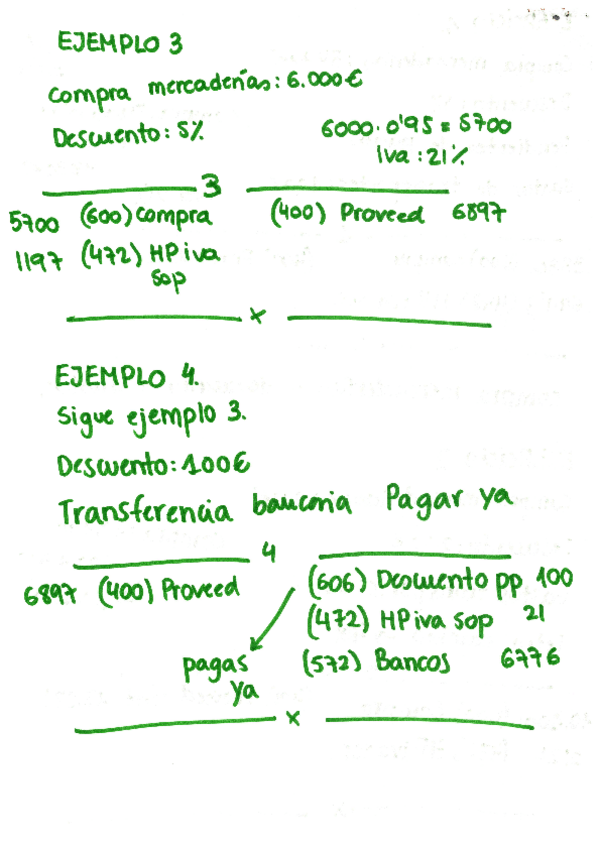 EJEMPLO 3
compra mercaderías: 6.000€
Descuento: 5% 6000·0'95 = 5700
iva: 21%
3
5700 (600) compra (400) Proveed 6897
1197 (472) HP iva
sop
x
EJEMPLO 4.
Sigue ejemplo 3.
Descuento: 100€
Transferencia bancaria Pagar ya
4
6897 (400) Proveed (606) Descuento pp 100
(472) HP iva sop 21
pagas (572) Bancos 6776
ya
x